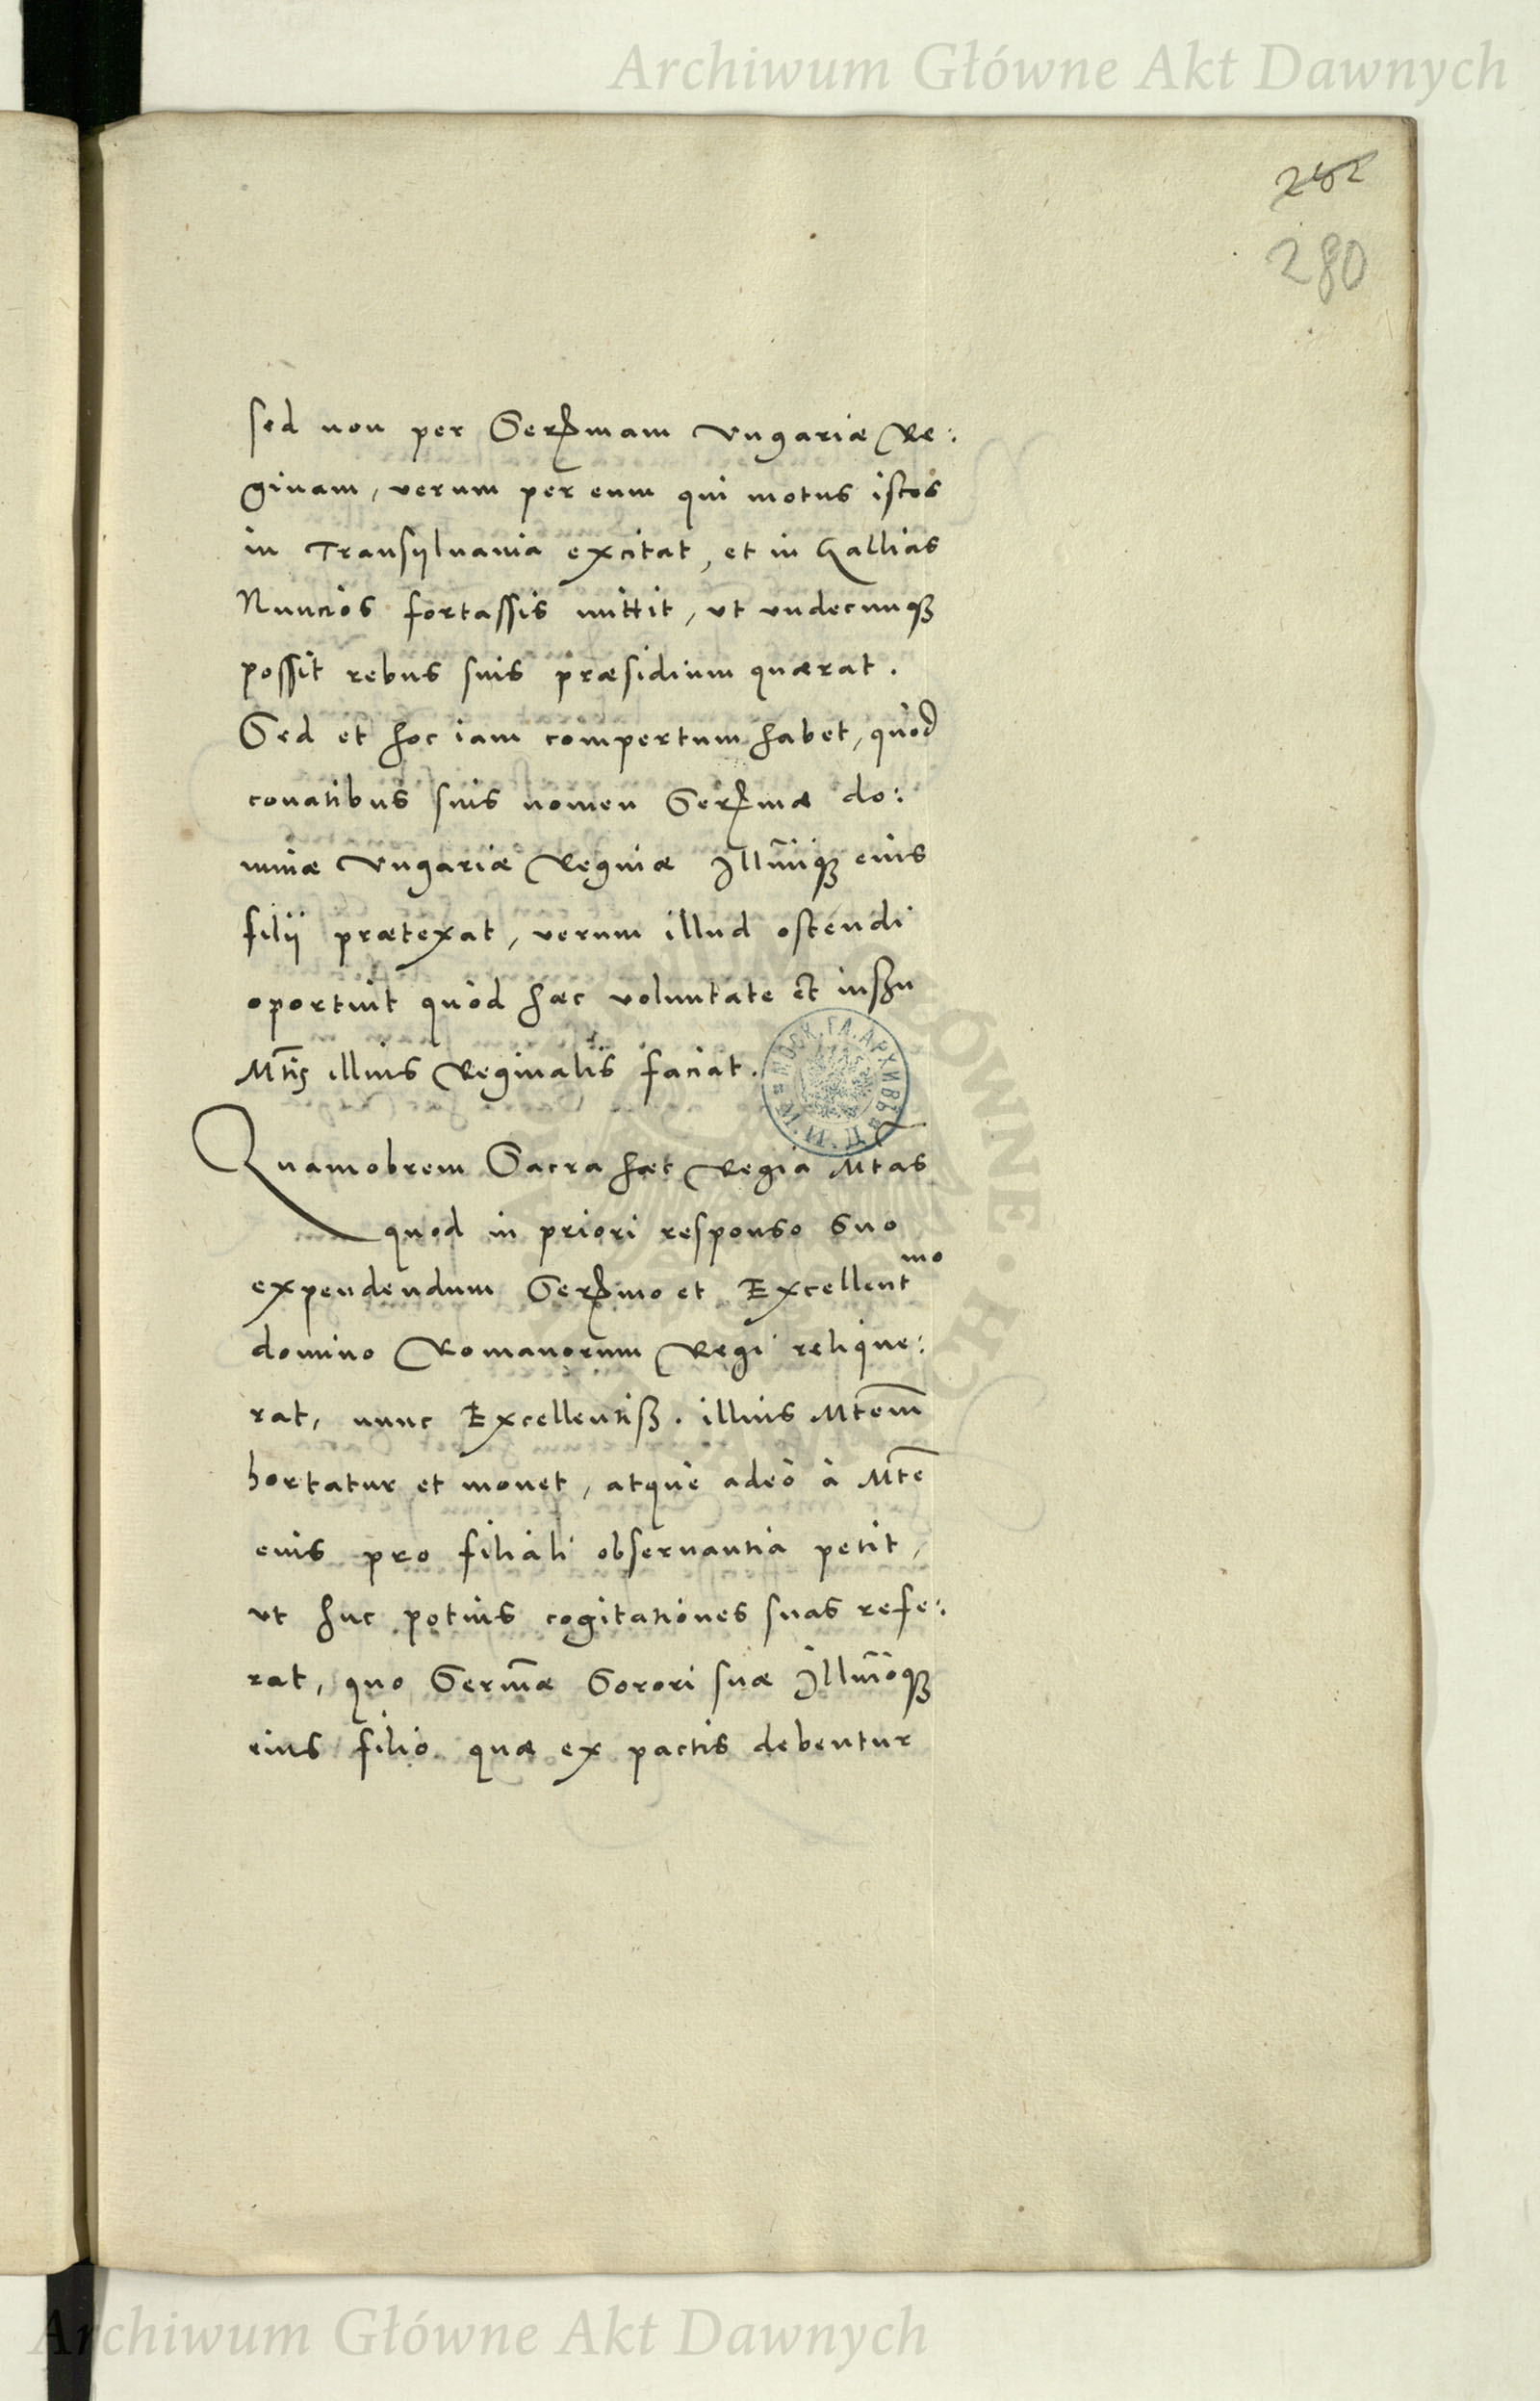 Archiwum Główne Akt Dawnych
252
280
sed non per Serenmam Vngariæ Re:
ginam, verum per eum qui motus istos
in Transyluania excitat, et in Gallias
Nuncios fortassis mittit, vt vndecunq3
possit rebus suis præsidium quærat.
Sed et hoc iam compertum habet, quòd
conatibus suis nomen Serenmæ do:
minæ Vngariæ Reginæ Illm̄iq3 eius
filij prætexat, verum illud ostendi
oportuit quòd hæc voluntate et iussu
Mt̄is illius Reginalis faciat.
Quamobrem Sacra hæc Regia Mtas
quod in priori responso suo
expendendum Serenmo et Excellentmo
domino Romanorum Regi relique:
rat, nunc Excellentiss. illius Mtem̄
hortatur et monet, atque adeò à Mt̄e
eius pro filiali obseruantia petit,
vt huc potius cogitationes suas refe:
rat, quo Serm̄æ Sorori suæ Illm̄oq3
eius filio quæ ex pactis debentur
Archiwum Główne Akt Dawnych